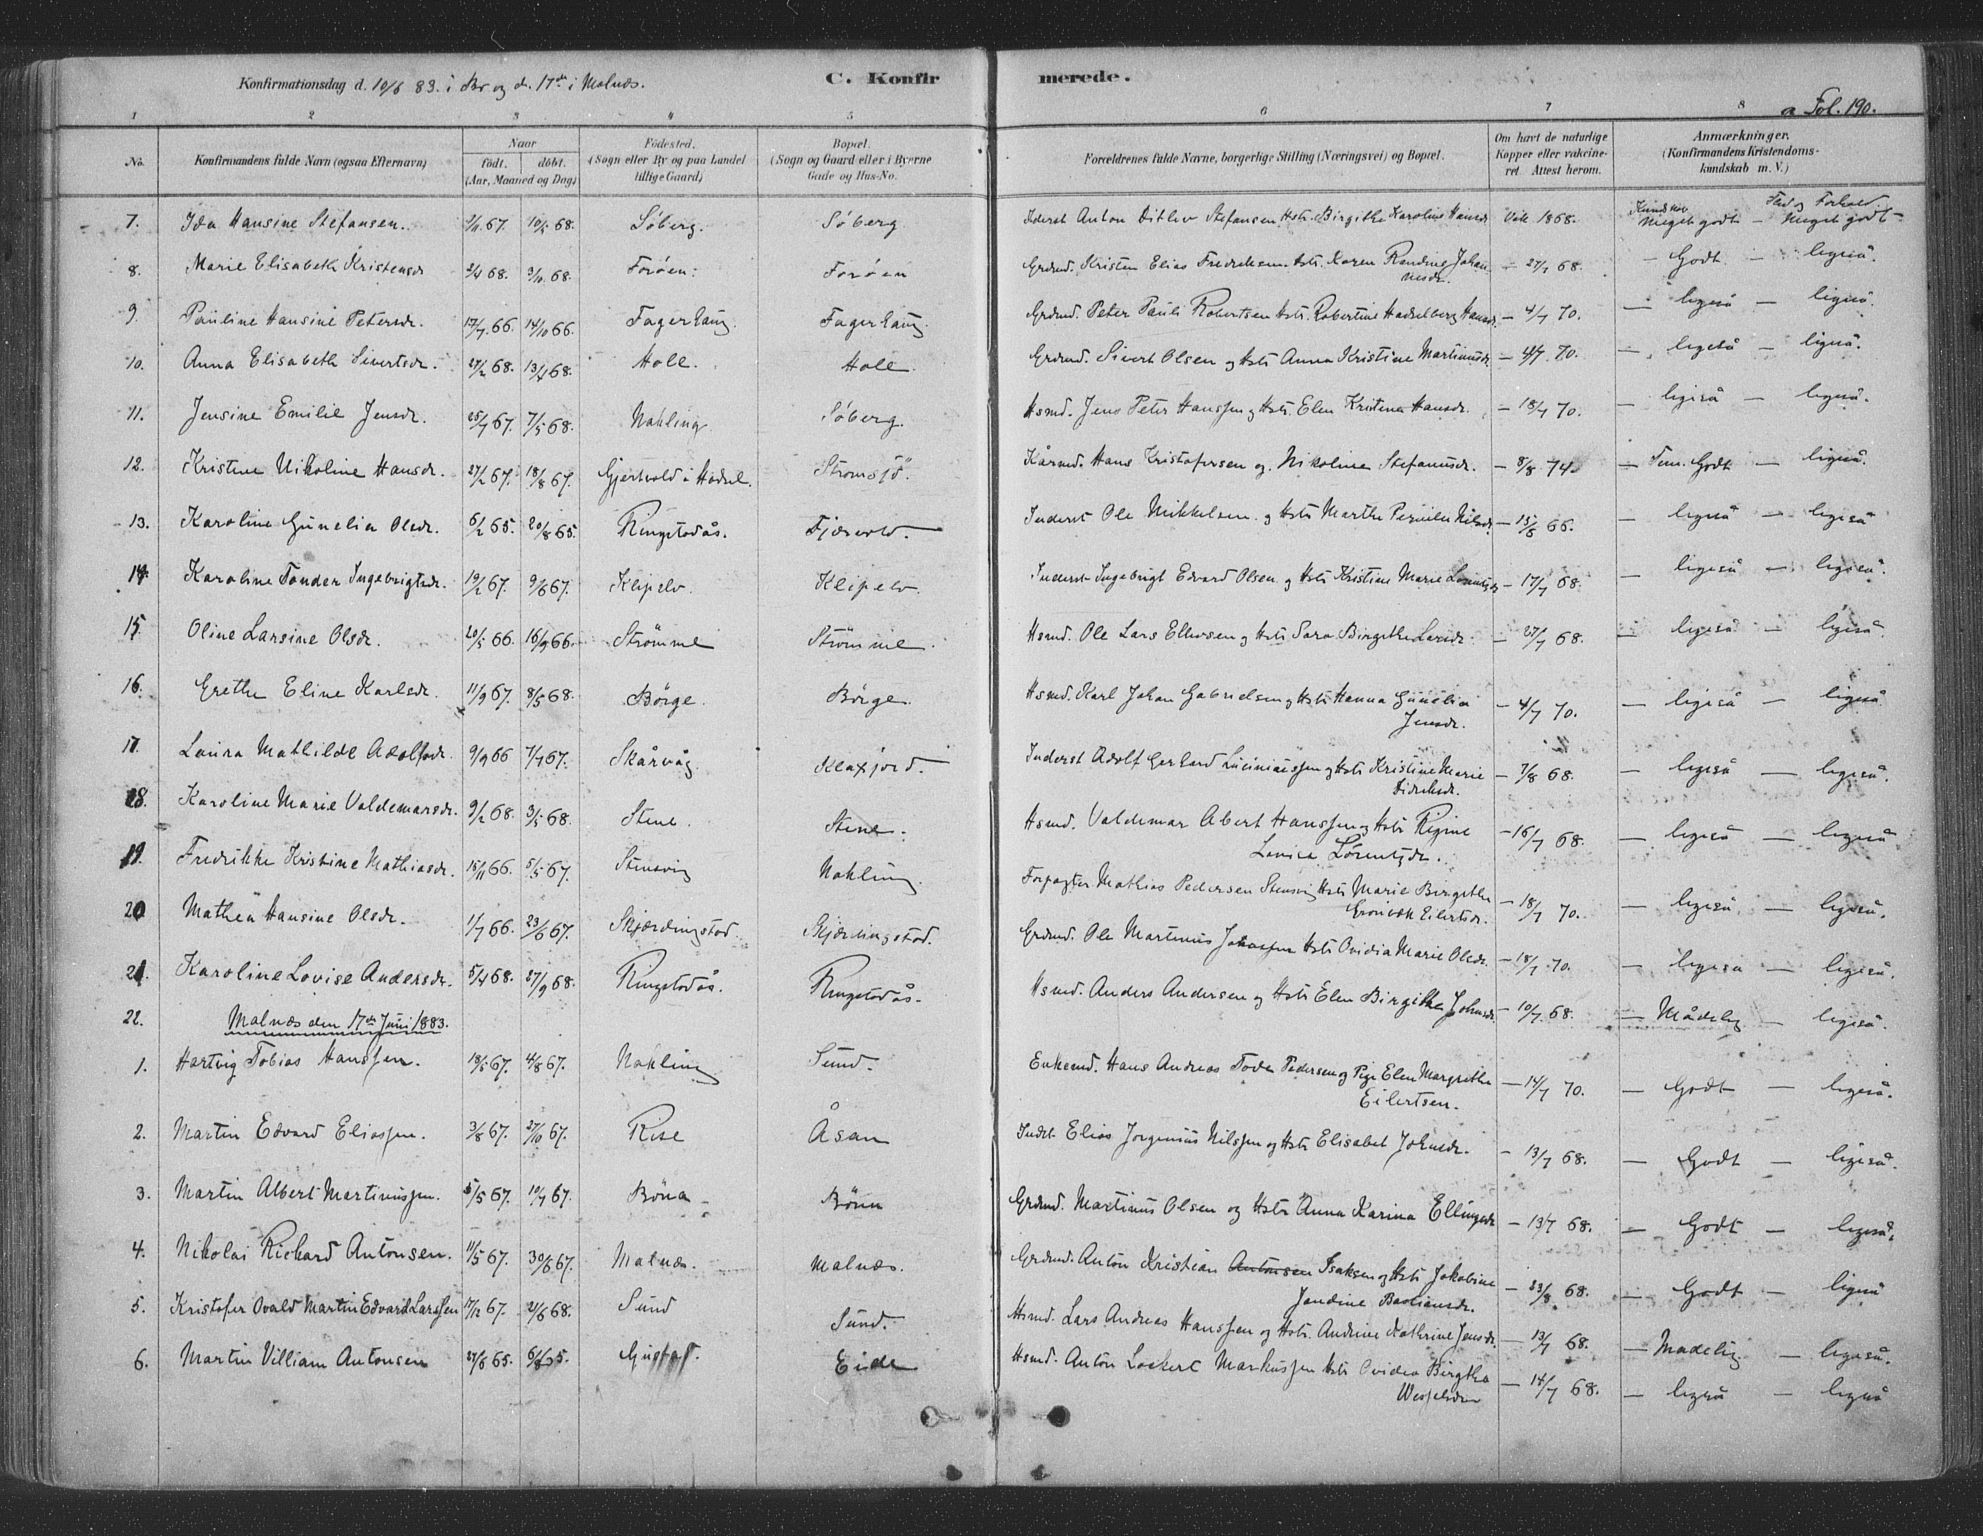 Konfirmationsdag d. 10/6 83. i Bø og d. 17de i Malnæs.
C. Konfir merede.
a Fol. 190.
1 2 3 4 5 6 7 8
No. Konfirmandens fulde Navn (ogsaa Efternavn) Naar født. døbt. (Aar, Maaned og Dag) Fødested. (Sogn eller By og paa Landet tillige Gaard) Bopæl. (Sogn og Gaard eller i Byerne Gade og Hus-No. Forældrenes fulde Navne, borgerlige Stilling (Næringsvei) og Bopæl. Om havt de naturlige Kopper eller vakcineret. Attest herom. Anmærkninger. (Konfirmandens Kristendomskundskab m. V.)
7. Ida Hansine Stefansen. 67. 68. Söberg. Söberg Inderst Anton Ditlev Stefansen Hstr. Birgithe Karoline Hansdr Vak. 1868. Kundskab Meget godt – Flid og Forhold Meget godt
8. Marie Elisabeth Kristensdr 2/4 68. 68. Foröen: Foröen Grdmd. Kristen Elias Fredriksen Hstr. Karen Randine Johannesdr. – 27/7 68. – Godt – ligeså.
9. Pauline Hansine Petersdr. 17/7 66. 14/10 66. Fagerhaug. Fagerhaug. Grdmd. Peter Pauli Robertsen Hstr. Robertine Hadselberg Hansdr. – 4/7 70. – ligeså – ligeså.
10. Anna Elisabeth Sivertsdr. 27/2 68. 13/4 68. Holl. Holl. Grdmd. Sivert Olsen og Hstr Anna Kristine Martinusdr – 4/7 70. – ligeså – ligeså.
11. Jensine Emilie Jensdr. 25/7 67. 7/5 68. Nøkling. Söberg. Hsmd. Jens Peter Hanssen og Hstr. Elen Kristina Hansdr. – 18/7 70. – ligeså – ligeså.
12. Kristine Nikoline Hansdr. 27/2 67. 18/8 67. Gjertvold i Hadsel. Strømsjö. Kårmd. Hans Kristofersen og Nikoline Stefansdr. – 8/8 74. – Tem. Godt – ligeså.
13. Karoline Gunelia Olsdr. 6/2 65. 20/8 65. Ringstadås. Fjærvold. Inderst Ole Mikkelsen og Hstr Marthe Pernille Nilsdr. – 66. – ligeså – ligeså
14. Karoline Tonder Ingebrigtsdr. 19/2 67. 9/6 67. Klipelv. Klipelv. Inderst Ingebrigt Edvard Olsen og Hstr Kristine Marie Lorentsdr – 17/7 68. – ligeså – ligeså.
15. Oline Larsine Olsdr. 20/5 66. 16/9 66. Strömme Strömme. Hsmd. Ole Lars Ellevsen og Hstr Sara Birgithe Larsdr. – 27/7 68. – ligeså – ligeså.
16. Grethe Eline Karlsdr. 11/9 67. 8/5 68. Börge. Börge. Hsmd. Karl Johan Gabrielsen og Hstr Hanna Gunelia Jensdr. – 4/7 70. – ligeså – ligeså
17. Laura Mathilde Adolfsdr. 9/9 66 7/7 67. Skårvåg. Klaxjord. Inderst Adolf Gerhard Luciniussen og Hstr Kristine Marie Didriksdr. – 7/8 68. – ligeså – ligeså.
18. Karoline Marie Valdemarsdr. 9/2 68. 3/5 68. Stene. Stene. Hsmd. Valdemar Abert Hanssen og Hstr Regine Lovisa Lorentsdr. – 16/7 68. – ligeså – ligeså
19. Fredrikke Kristine Mathiasdr. 15/11 66. 5/5 67. Stensvig Nøkling. Forpagter Mathias Pedersen Stensvig Hstr Marie Birgithe Eilertsdr. – 18/7 70. – ligeså – ligeså.
20 Mathea Hansine Olsdr. 1/7 66. 23/6 67. Skjærdingstad. Skjærdingstad. Grdmd. Ole Martinus Johnssen Hstr Ovidia Marie Olsdr. – 18/7 70. – ligeså – ligeså.
21. Karoline Lovise Andersdr. 5/4 68. 27/9 68. Ringstadås. Ringstadås. Hsmd. Anders Andersen og Hstr Elen Birgithe Johnsdr. – 10/7 68. – Mådelig – ligeså.
22. Malnæs den 17de Juni 1883.
1. Hartvig Tobias Hanssen. 18/5 67. 4/8 67. Nøkling Sund. Enkemd. Hans Andreas Pedersen og Pige Elen Margrethe Eilertsen. – 14/7 70. – Godt – ligeså.
2. Martin Edvard Eliassen. 3/8 67. 27/10 67. Rise Åsan Indst. Elias Jørgenius Nilssen og Hstr Elisabet Johnsdr. – 13/7 68. – Godt – ligeså.
3. Martin Albert Martinussen. 5/5 67. 10/7 67. Böna Böna Grdmd. Martinus Olsen og Hstr Anna Karina Ellingsdr – 13/7 68. – Godt – ligeså.
4. Nikolai Richard Antonsen. 11/5 67. 30/6 67. Malnæs. Malnæs. Grdmd. Anton Kristian Antonsen Isaksen og Hstr Jakobine Jendine Bastiansdr. – 23/8 68. – Godt – ligeså
5. Kristofer Ovald Martin Edvard Larssen 17/12 67. 21/6 68. Sund Sund. Hsmd. Lars Andreas Hanssen og Hstr. Andrine Kathrine Jensdr. – 13/7 68. – Madelig – ligeså.
6. Martin Villiam Antonsen 27/6 65. Gustad. Eide Hsmd. Anton Lockert Markussen Hstr Ovidea Birgtha – 14/7 68. – ligeså – ligeså